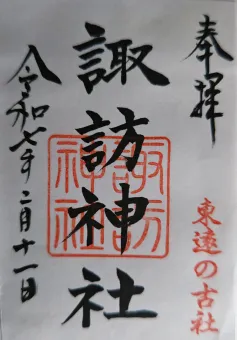 奉拝
東遠の古社
諏訪神社
諏訪神社
令和七年二月十一日